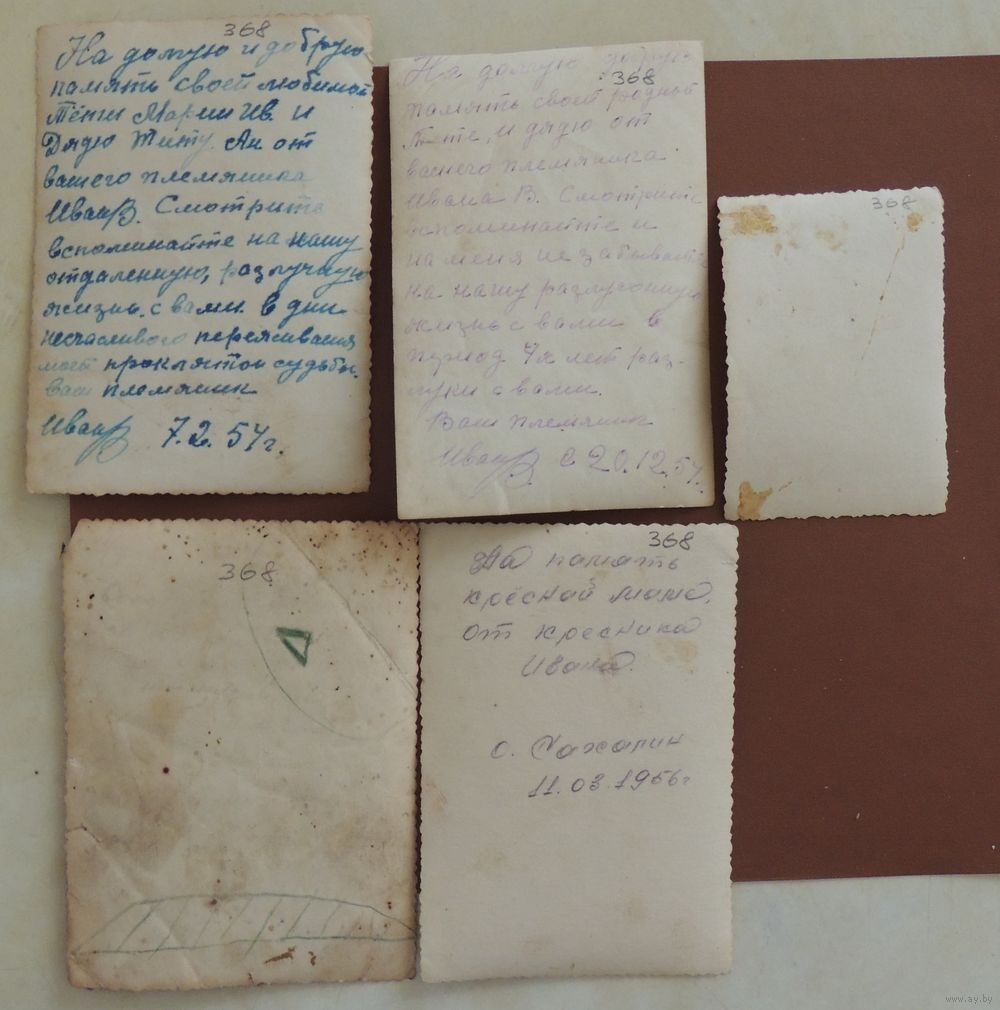 368
На долгую и добрую
память своей любимой
Тёти Марии Ив. и
Дядю Титу. Ан от
вашего племяника
ИванВ. Смотрите
вспоминайте на нашу
отдаленную, разлучную
жизнь. с вами. в дни
несчасливого переживания
моей проклятой судьбы.
Ваш племяник
ИванВ 7.2.54г.
368
На долгую добрую
память своей родной
Тёте, и дядю от
вашего племяника
Ивана В. Смотрите
вспоминайте и
на меня не забывайте
на нашу разлучонную
жизнь с вами в
период 4х лет раз-
луки с вами.
Ваш племяник
ИванВ. 20.12.54.
368
368
368
На память
крёсной мамы.
от кресника
Ивана.
о. Сахалин
11.03.1956г
www.ay.by